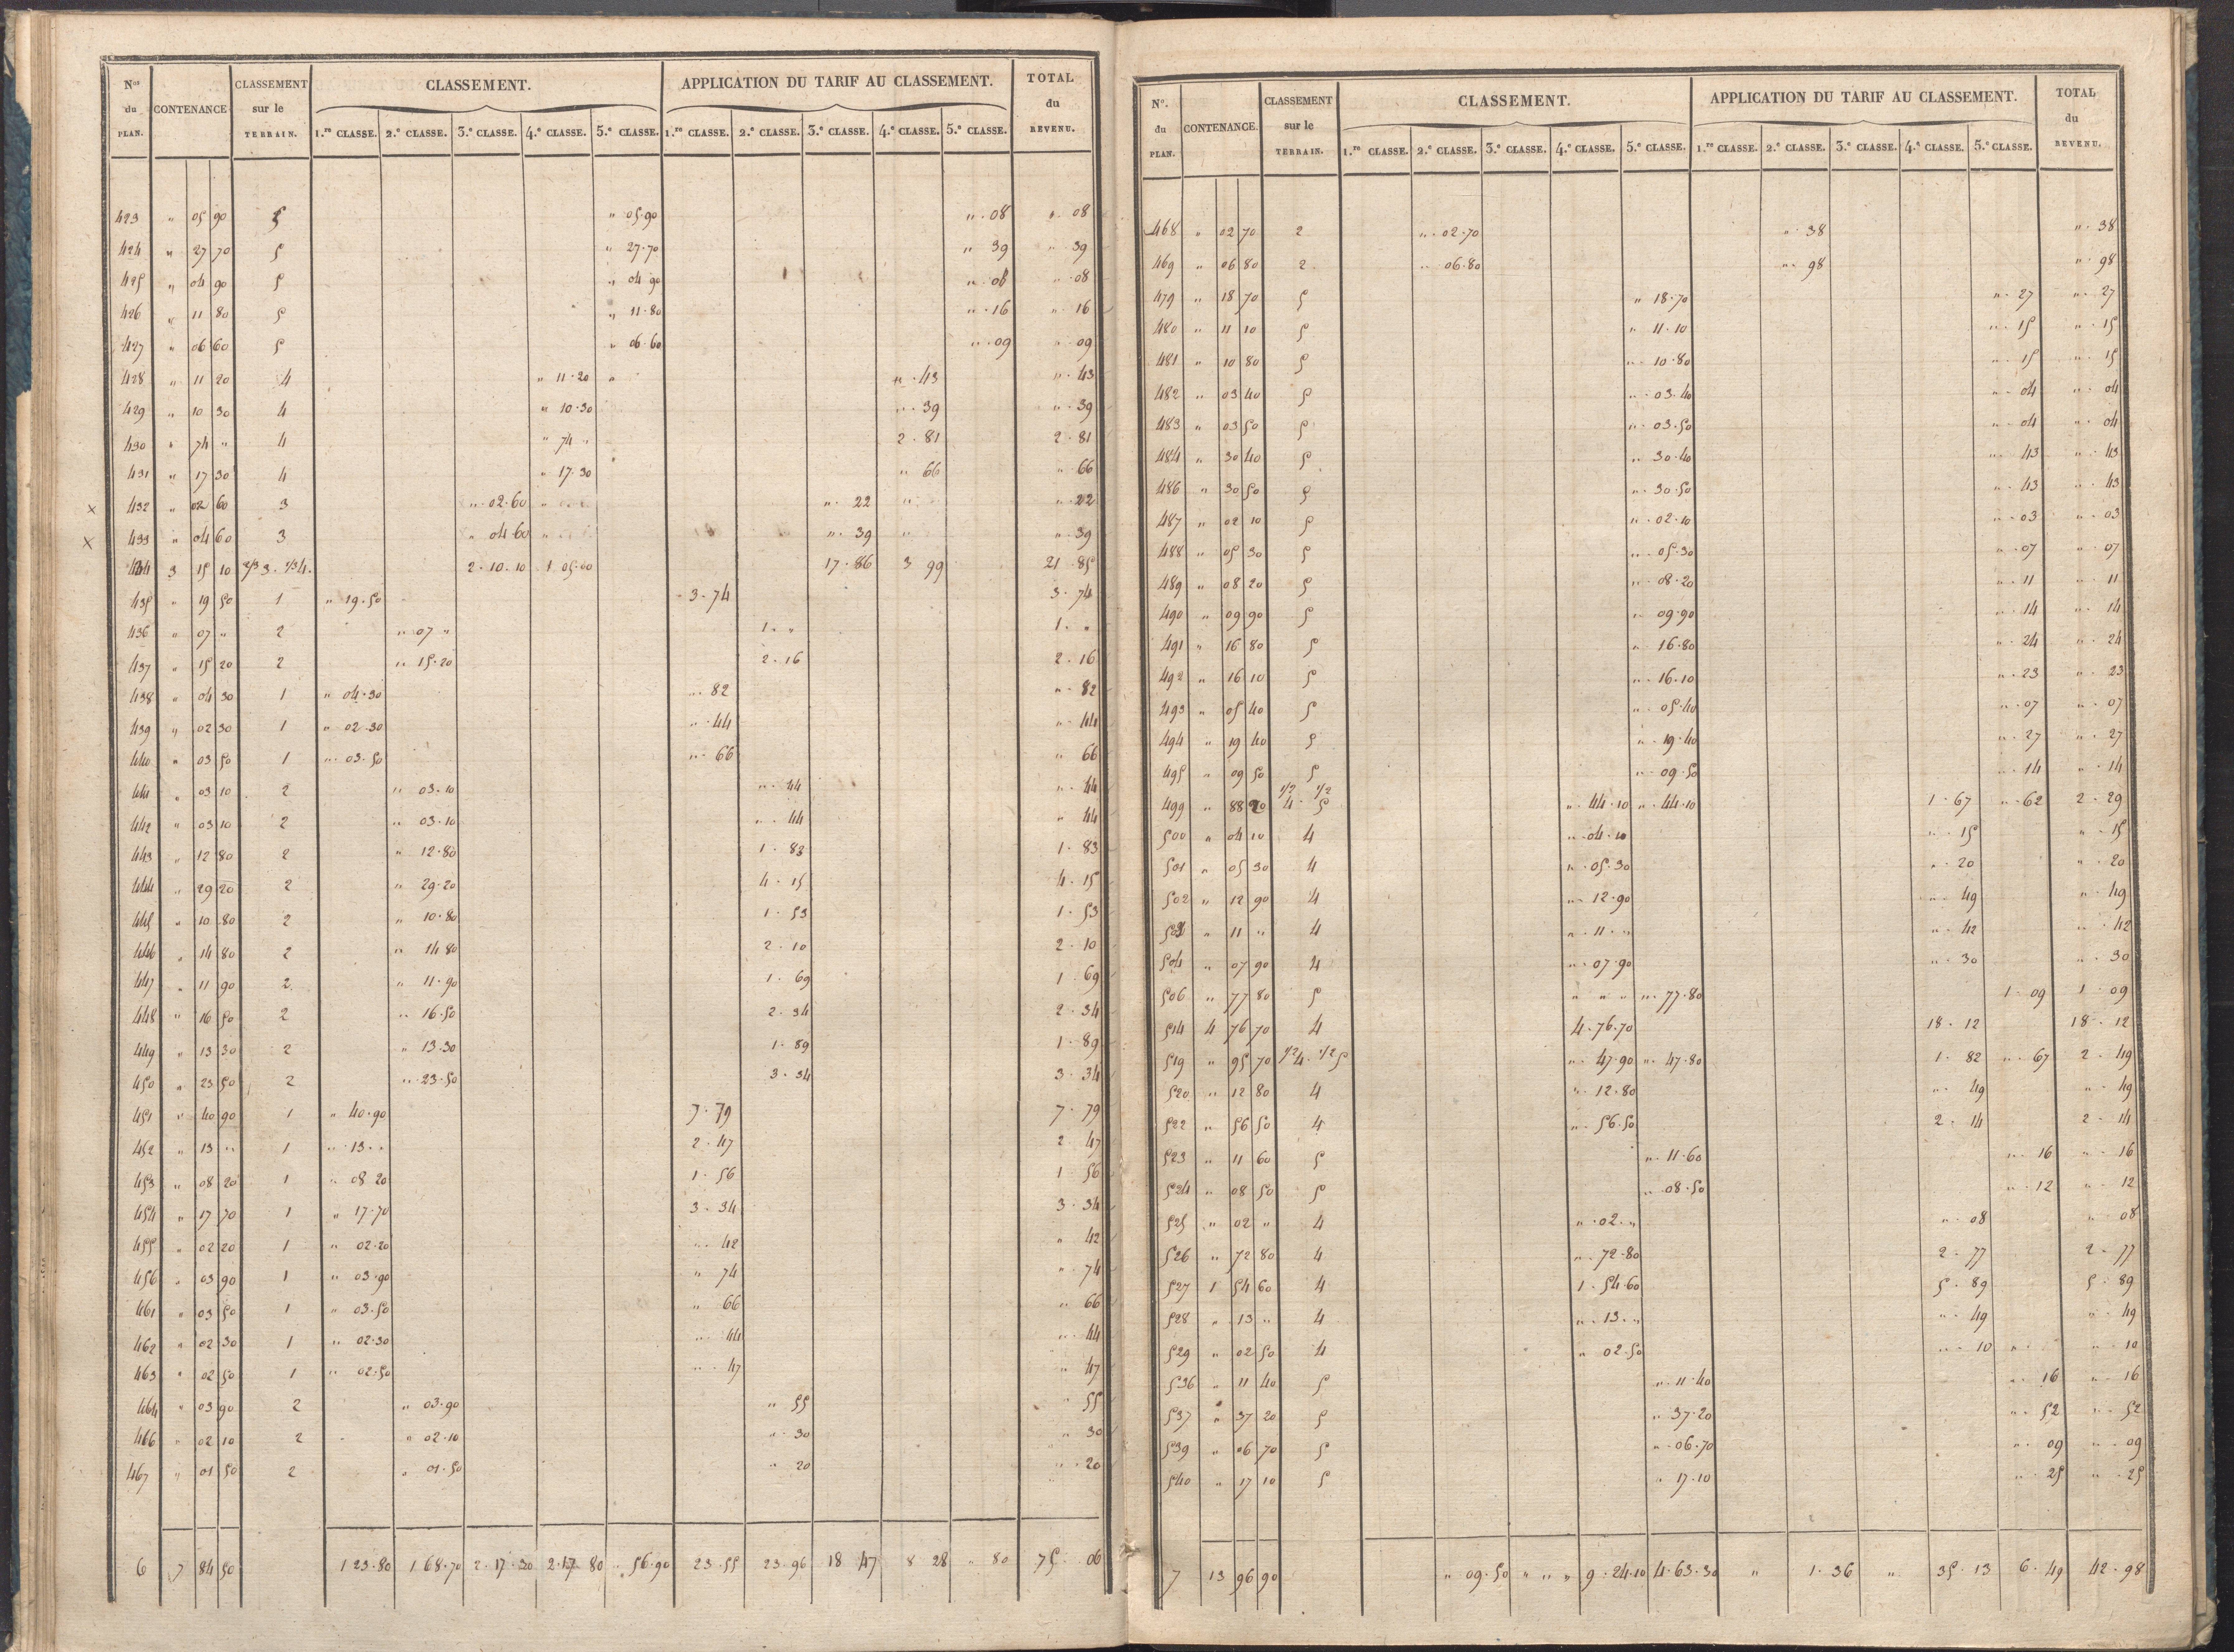 Nos du PLAN. CONTENANCE CLASSEMENT sur le TERRAIN. CLASSEMENT. APPLICATION DU TARIF AU CLASSEMENT. TOTAL du REVENU.
1.re CLASSE. 2.e CLASSE. 3.e CLASSE. 4.e CLASSE. 5.e CLASSE. 1.re CLASSE. 2.e CLASSE. 3.e CLASSE. 4.e CLASSE. 5.e CLASSE.
423 " 05 90 5 " 05.90 " . 08 " . 08
424 " 27 70 5 " 27.70 " 39 " . 39
425 " 04 90 5 " 04 90 " . 08 " . 08
426 " 11 80 5 " 11.80 " . 16 " . 16
427 " 06 60 5 " 06.60 " . 09 " . 09
428 " 11 20 4 " 11.20 " " . 43 " . 43
429 " 10 30 4 " 10.30 " . 39 " . 39
430 " 74 " 4 " 74 " 2 . 81 2 . 81
431 " 17 30 4 " 17.30 " 66 " 66
x 432 " 02 60 3 " . 02.60 " " . 22 " " . 22
x 433 " 04 60 3 " 04.60 " " . 39 " " . 39
434 3 15 10 2/3 3. 1/3 4. 2.10.10 1 05.00 17.86 3 99 21 . 85
435 " 19 50 1 " 19.50 3.74 3 . 74
436 " 07 " 2 " 07 " 1 . " 1 . "
437 " 15 20 2 " 15.20 2.16 2 . 16
438 " 04 30 1 " 04.30 " . 82 " . 82
439 " 02 30 1 " 02.30 " . 44 " . 44
440 " 03 50 1 " . 03.50 " . 66 " 66
441 " 03 10 2 " 03.10 " . 44 " . 44
442 " 03 10 2 " 03.10 " . 44 " 44
443 " 12 80 2 " 12.80 1 . 83 1 . 83
444 " 29 20 2 " 29.20 4 . 15 4 . 15
445 " 10 80 2 " 10.80 1 . 53 1 . 53
446 " 14 80 2 " 14 80 2 . 10 2 . 10
447 " 11 90 2 " 11.90 1 . 69 1 . 69
448 " 16 50 2 " 16.50 2 . 34 2 . 34
449 " 13 30 2 " 13.30 1 . 89 1 . 89
450 " 23 50 2 " 23.50 3 . 34 3 . 34
451 " 40 90 1 " 40.90 7 . 79 7 . 79
452 " 13 " 1 " 13 " 2 . 47 2 47
453 " 08 20 1 " 08 20 1 . 56 1 56
454 " 17 70 1 " 17.70 3 . 34 3 . 34
455 " 02 20 1 " 02.20 " . 42 " 42
456 " 03 90 1 " 03.90 " 74 " . 74
461 " 03 50 1 " 03.50 " 66 " 66
462 " 02 30 1 " 02.30 " . 44 " . 44
463 " 02 50 1 " 02.50 " . 47 " 47
464 " 03 90 2 " 03.90 " 55 " 55
466 " 02 10 2 " 02.10 " . 30 " 30
467 " 01 50 2 " 01.50 " 20 " . 20
6 7 84 50 1 23.80 1 68.70 2.17.30 2.17 80 " 56.90 23.55 23.96 18 47 8 28 " 80 75 . 06
N.o du PLAN. CONTENANCE. CLASSEMENT sur le TERRAIN. CLASSEMENT. APPLICATION DU TARIF AU CLASSEMENT. TOTAL du REVENU.
1.re CLASSE. 2.e CLASSE. 3.e CLASSE. 4.e CLASSE. 5.e CLASSE. 1.re CLASSE. 2.e CLASSE. 3.e CLASSE. 4.e CLASSE. 5.e CLASSE.
468 " 02 70 2 " . 02.70 " 38 " . 38
469 " 06 80 2 " 06.80 " . 98 " . 98
479 " 18 70 5 " 18.70 " . 27 " . 27
480 " 11 10 5 " 11.10 " . 15 " . 15
481 " 10 80 5 " . 10.80 " . 15 " . 15
482 " 03 40 5 " . 03.40 " . 04 " . 04
483 " 03 50 5 " . 03.50 " . 04 " . 04
484 " 30 40 5 " . 30.40 " . 43 " . 43
486 " 30 50 5 " . 30.50 " . 43 " . 43
487 " 02 10 5 " . 02.10 " . 03 " . 03
488 " 05 30 5 " . 05.30 " . 07 " . 07
489 " 08 20 5 " . 08.20 " . 11 " . 11
490 " 09 90 5 " 09.90 " . 14 " . 14
491 " 16 80 5 " 16.80 " . 24 " . 24
492 " 16 10 5 " . 16.10 " . 23 " . 23
493 " 05 40 5 " . 05.40 " . 07 " . 07
494 " 19 40 5 " . 19.40 " . 27 " . 27
495 " 09 50 5 " . 09.50 " . 14 " . 14
499 " 88 20 1/2 4. 1/2 5 " . 44.10 " . 44.10 1 . 67 " . 62 2 . 29
500 " 04 10 4 " . 04.10 " . 15 " . 15
501 " 05 30 4 " . 05.30 " . 20 " . 20
502 " 12 90 4 " . 12.90 " . 49 " . 49
503 " 11 " 4 " . 11 . " " . 42 " . 42
504 " 07 90 4 " . 07.90 " . 30 " . 30
506 " 77 80 5 " " " " . 77.80 1 . 09 1 . 09
514 4 76 70 4 4.76.70 18 . 12 18 . 12
519 " 95 70 1/2 4. 1/2 5 " . 47.90 " . 47.80 1 . 82 " . 67 2 . 49
520 " 12 80 4 " . 12.80 " . 49 " . 49
522 " 56 50 4 " . 56.50 2 . 14 2 . 14
523 " 11 60 5 " . 11.60 " . 16 " . 16
524 " 08 50 5 " . 08.50 " . 12 " . 12
525 " 02 " 4 " . 02 . " " . 08 " . 08
526 " 72 80 4 " . 72.80 2 . 77 2 . 77
527 1 54 60 4 1 . 54.60 5 . 89 5 . 89
528 " 13 " 4 " . 13 . " " . 49 " . 49
529 " 02 50 4 " 02.50 " . 10 " " . 10
536 " 11 40 5 " . 11.40 " . 16 " . 16
537 " 37 20 5 " . 37.20 " . 52 " . 52
539 " 06 70 5 " . 06.70 " . 09 " . 09
540 " 17 10 5 " . 17.10 " . 25 " . 25
7 13 96 90 " 09.50 " " " 9 . 24.10 4.63.30 " 1 . 36 " 35 . 13 6 . 49 42 . 98